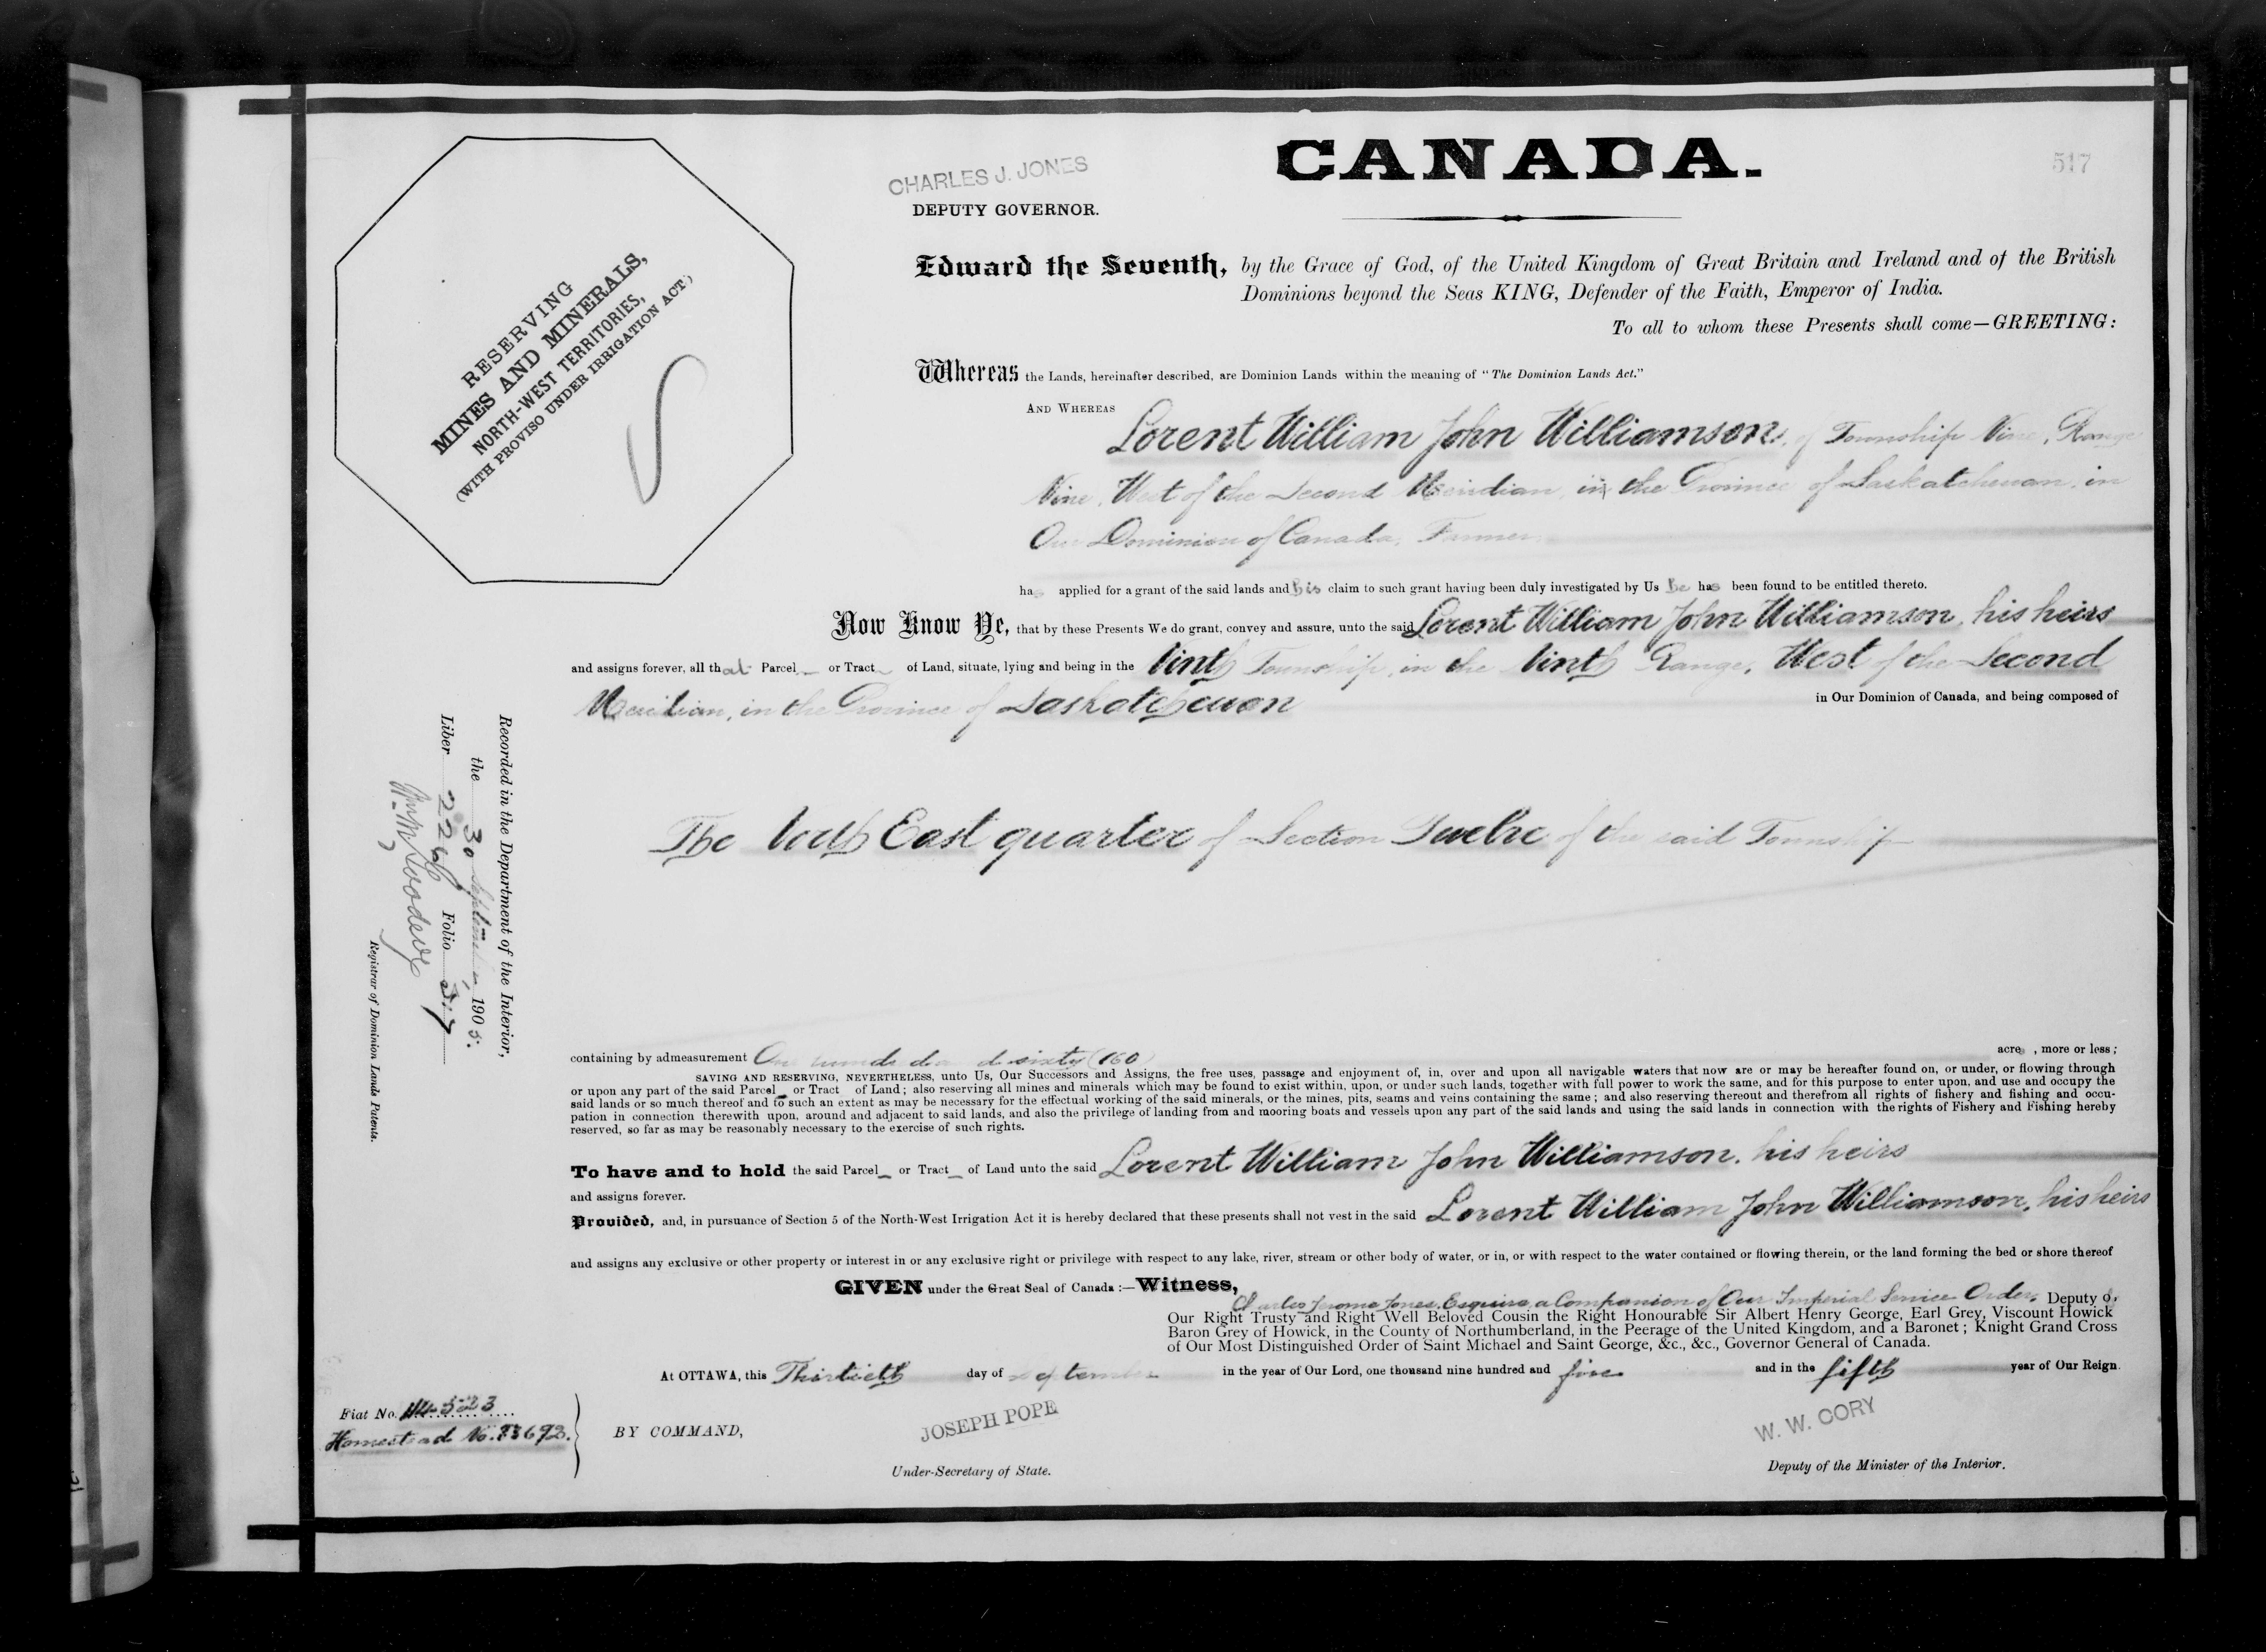 CANADA.
517
CHARLES J. JONES
DEPUTY GOVERNOR.
RESERVING
MINES AND MINERALS,
NORTH-WEST TERRITORIES,
(WITH PROVISO UNDER IRRIGATION ACT)
Edward the Seventh, by the Grace of God, of the United Kingdom of Great Britain and Ireland and of the British
Dominions beyond the Seas KING, Defender of the Faith, Emperor of India.
To all to whom these Presents shall come—GREETING:
Whereas the Lands, hereinafter described, are Dominion Lands within the meaning of "The Dominion Lands Act."
AND WHEREAS
Lorent William John Williamson, of Township Nine, Range
Nine, West of the Second Meridian, in the Province of Saskatchewan, in
Our Dominion of Canada, Farmer
has applied for a grant of the said lands and his claim to such grant having been duly investigated by Us he has been found to be entitled thereto.
Now Know Ye, that by these Presents We do grant, convey and assure, unto the said Lorent William John Williamson, his heirs
and assigns forever, all that Parcel or Tract of Land, situate, lying and being in the Ninth Township, in the Ninth Range, West of the Second
Meridian, in the Province of Saskatchewan
in Our Dominion of Canada, and being composed of
The North East quarter of Section Twelve of the said Township
Recorded in the Department of the Interior,
the 30 September, 1905.
Liber 226 Folio 517
Registrar of Dominion Lands Patents.
containing by admeasurement One hundred and sixty (160) acres, more or less;
SAVING AND RESERVING, NEVERTHELESS, unto Us, Our Successors and Assigns, the free uses, passage and enjoyment of, in, over and upon all navigable waters that now are or may be hereafter found on, or under, or flowing through
or upon any part of the said Parcel or Tract of Land; also reserving all mines and minerals which may be found to exist within, upon, or under such lands, together with full power to work the same, and for this purpose to enter upon, and use and occupy the
said lands or so much thereof and to such an extent as may be necessary for the effectual working of the said minerals, or the mines, pits, seams and veins containing the same; and also reserving thereout and therefrom all rights of fishery and fishing and occu-
pation in connection therewith upon, around and adjacent to said lands, and also the privilege of landing from and mooring boats and vessels upon any part of the said lands and using the said lands in connection with the rights of Fishery and Fishing hereby
reserved, so far as may be reasonably necessary to the exercise of such rights.
To have and to hold the said Parcel or Tract of Land unto the said Lorent William John Williamson, his heirs
and assigns forever.
Provided, and, in pursuance of Section 5 of the North-West Irrigation Act it is hereby declared that these presents shall not vest in the said Lorent William John Williamson, his heirs
and assigns any exclusive or other property or interest in or any exclusive right or privilege with respect to any lake, river, stream or other body of water, or in, or with respect to the water contained or flowing therein, or the land forming the bed or shore thereof
GIVEN under the Great Seal of Canada:—Witness,
Charles Jerome Jones, Esquire, a Companion of Our Imperial Service Order, Deputy of
Our Right Trusty and Right Well Beloved Cousin the Right Honourable Sir Albert Henry George, Earl Grey, Viscount Howick
Baron Grey of Howick, in the County of Northumberland, in the Peerage of the United Kingdom, and a Baronet; Knight Grand Cross
of Our Most Distinguished Order of Saint Michael and Saint George, &c., &c., Governor General of Canada.
At OTTAWA, this Thirtieth day of September in the year of Our Lord, one thousand nine hundred and five and in the fifth year of Our Reign.
Fiat No.
Homestead No.
BY COMMAND,
JOSEPH POPE
Under-Secretary of State.
W. W. CORY
Deputy of the Minister of the Interior.